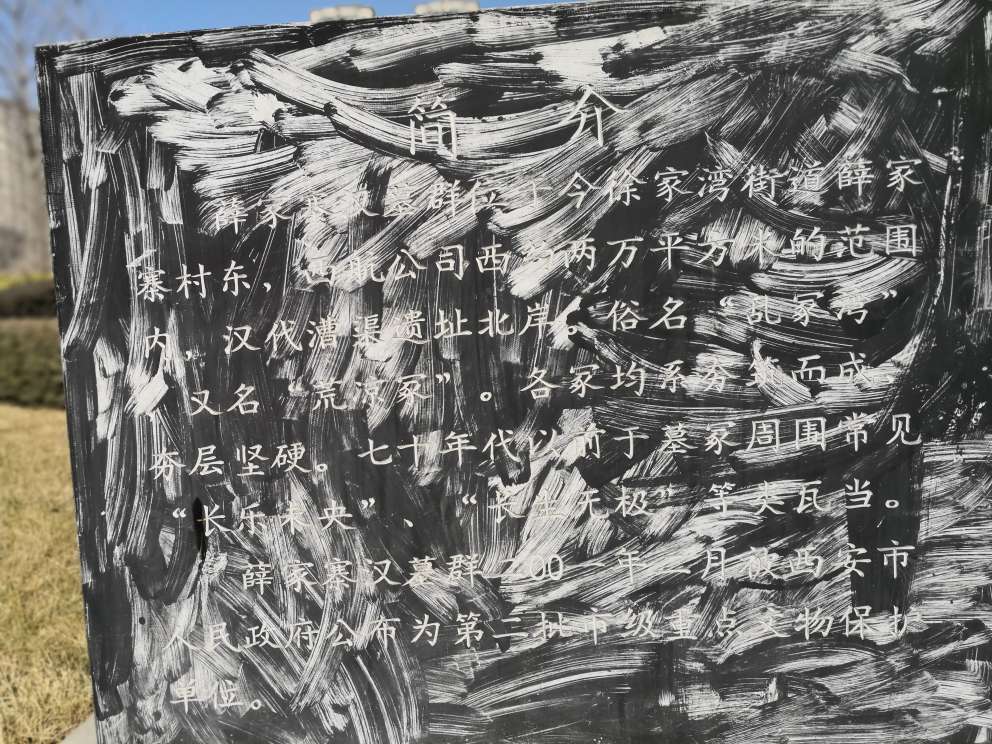 简 介
薛家寨汉墓群位于今徐家湾街道薛家
寨村东,西航公司西约两万平方米的范围
内,汉代漕渠遗址北岸。俗名“乱冢湾”
又名“荒凉冢”。各冢均系夯筑而成,
夯层坚硬。七十年代以前于墓冢周围常见
“长乐未央”、“长生无极”等类瓦当。
薛家寨汉墓群二00一年 月被西安市
人民政府公布为第二批市级重点文物保护
单位。